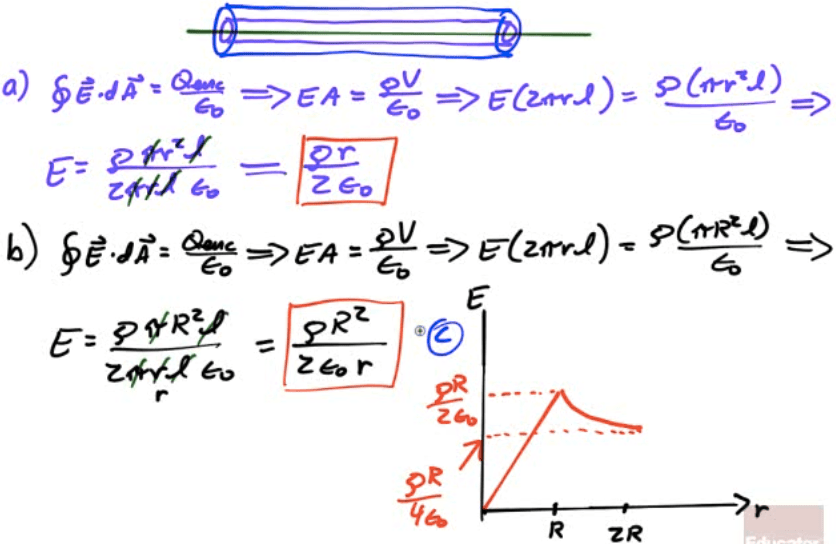 a) ∮E⃗·dA⃗ = Qenc/ϵ₀ ⟹ EA = ρV/ϵ₀ ⟹ E(2πrl) = ρ(πr²l)/ϵ₀ ⟹
E = ρπr²l/2πrlϵ₀ = ρr/2ϵ₀
b) ∮E⃗·dA⃗ = Qenc/ϵ₀ ⟹ EA = ρV/ϵ₀ ⟹ E(2πrl) = ρ(πR²l)/ϵ₀ ⟹
E = ρπR²l/2πrlϵ₀ = ρR²/2ϵ₀r
r
c
E
ρR/2ϵ₀
ρR/4ϵ₀
R 2R r
Educator